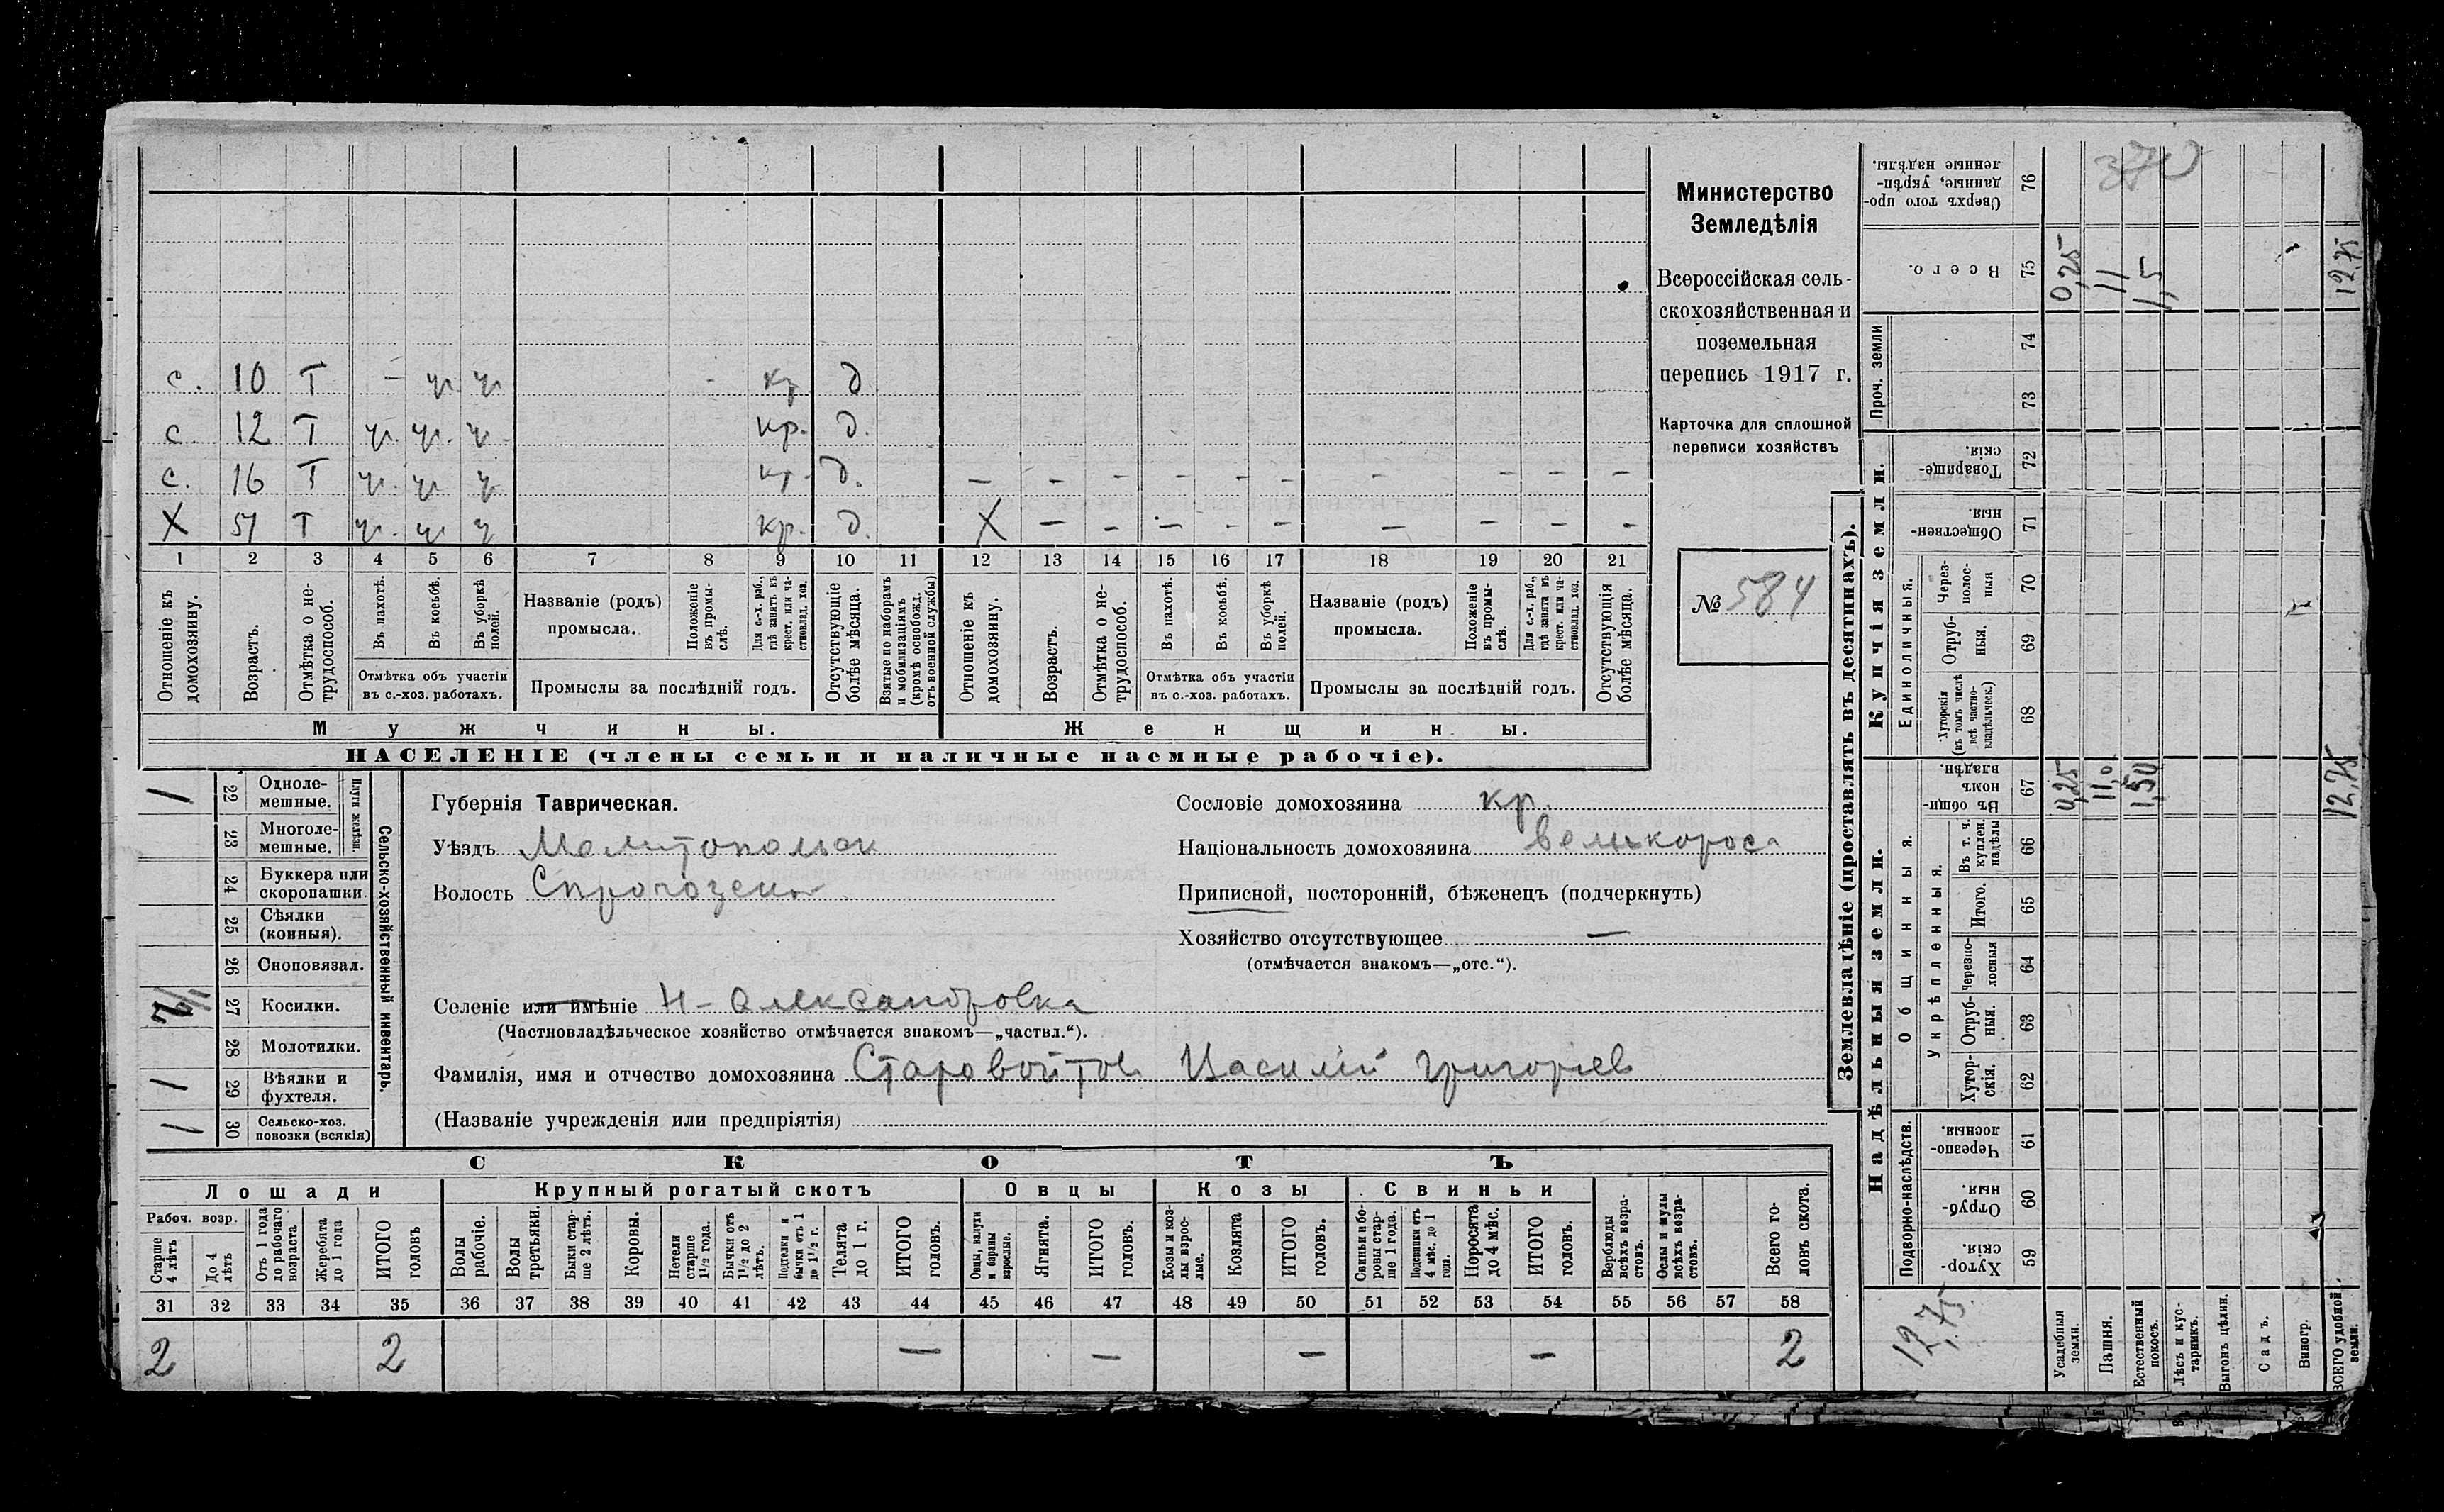 Министерство
Земледѣлія
Всероссійская сель-
скохозяйственная и
поземельная
перепись 1917 г.
Карточка для сплошной
переписи хозяйствъ
№ 584
с. 10 Т – кр. д
с 12 Т кр. д.
с. 16 Т кр. д. – – – – – – – – – –
Х 51 Т кр. д. Х – – – – – – – – –
1 2 3 4 5 6 7 8 9 10 11 12 13 14 15 16 17 18 19 20 21
Отношеніе къ домохозяину.
Возрастъ.
Отмѣтка о не-трудоспособ.
Въ пахотѣ.
Въ косьбѣ.
Въ уборкѣ полей.
Отмѣтка объ участіи
въ с.-хоз. работахъ.
Названіе (родъ)
промысла.
Положеніе въ промы-слѣ.
Для с.-х. раб., гдѣ занятъ въ крест. или ча-стновлад. хоз.
Промыслы за послѣдній годъ.
Отсутствующіе болѣе мѣсяца.
Взятые по наборамъ и мобилизаціямъ (кромѣ освобожд. отъ военной службы)
Отношеніе къ домохозяину.
Возрастъ.
Отмѣтка о не-трудоспособ.
Въ пахотѣ.
Въ косьбѣ.
Въ уборкѣ полей.
Отмѣтка объ участіи
въ с.-хоз. работахъ.
Названіе (родъ)
промысла.
Положеніе въ промы-слѣ.
Для с.-х. раб., гдѣ занята въ крест. или ча-стновлад. хоз.
Промыслы за послѣдній годъ.
Отсутствующія болѣе мѣсяца.
Мужчины. Женщины.
НАСЕЛЕНІЕ (члены семьи и наличные наемные рабочіе).
Сельско-хозяйственный инвентарь.
Плуги желѣзн.
1 22 Одноле-мешные.
23 Многоле-мешные.
24 Буккера или скоропашки.
25 Сѣялки (конныя).
26 Сноповязал.
27 Косилки.
28 Молотилки.
1 29 Вѣялки и фухтеля.
1 30 Сельско-хоз. повозки (всякія)
Губернія Таврическая.
Уѣздъ Мелитопольск
Волость
Селеніе или имѣніе Н-Александровка
(Частновладѣльческое хозяйство отмѣчается знакомъ—„частвл.“).
Фамилія, имя и отчество домохозяина Старовойтов Василій Григорьев
(Названіе учрежденія или предпріятія)
Сословіе домохозяина кр.
Національность домохозяина великорос
Приписной, посторонній, бѣженецъ (подчеркнуть)
Хозяйство отсутствующее –
(отмѣчается знакомъ—„отс.“).
СКОТЪ
Лошади Крупный рогатый скотъ Овцы Козы Свиньи
Рабоч. возр.
Старше 4 лѣтъ
До 4 лѣтъ
Отъ 1 года до рабочаго возраста
Жеребята до 1 года
ИТОГО головъ
Волы рабочіе.
Волы третьяки.
Быки стар-ше 2 лѣтъ.
Коровы.
Нетели старше 1½ года.
Бычки отъ 1½ до 2 лѣтъ.
Подтелки и бычки отъ 1 до 1½ г.
Телята до 1 г.
ИТОГО головъ.
Овцы, валухи и бараны взрослые.
Ягнята.
ИТОГО головъ.
Козы и коз-лы взрос-лые.
Козлята
ИТОГО головъ.
Свиньи и бо-ровы стар-ше 1 года.
Подсвинки отъ 4 мѣс. до 1 года.
Поросята до 4 мѣс.
ИТОГО головъ.
Верблюды всѣхъ возра-стовъ.
Ослы и мулы всѣхъ возра-стовъ.
Всего го-ловъ скота.
31 32 33 34 35 36 37 38 39 40 41 42 43 44 45 46 47 48 49 50 51 52 53 54 55 56 57 58
2 2 – – – – 2
Землевладѣніе (проставлять въ десятинахъ).
Надѣльныя земли. Купчія земли. Проч. земли
Подворно-наслѣдств. Общинныя. Единоличныя.
Укрѣпленныя.
Хутор-скія. 59
Отруб-ныя. 60
Черезпо-лосныя 61
Хутор-скія. 62
Отруб-ныя. 63
Черезпо-лосныя 64
Итого. 65
Въ т. ч. куплен. надѣлы 66
Въ общин-номъ владѣн. 67
Хуторскія (въ томъ числѣ всѣ частно-владѣльческ.) 68
Отруб-ныя. 69
Через-полос-ныя 70
Обществен-ныя. 71
Товарище-скія. 72
73
74
Всего. 75
Сверхъ того про-данные, укрѣп-ленные надѣлы. 76
370
12,75
Усадебныя земли. 0,25 0,25
Пашня. 11,0 11
Естественный покосъ. 1,50 1,5
Лѣсъ и кус-тарникъ.
Выгонъ цѣлин.
Садъ.
Виногр.
ВСЕГО удобной земли. 12,75 12,75